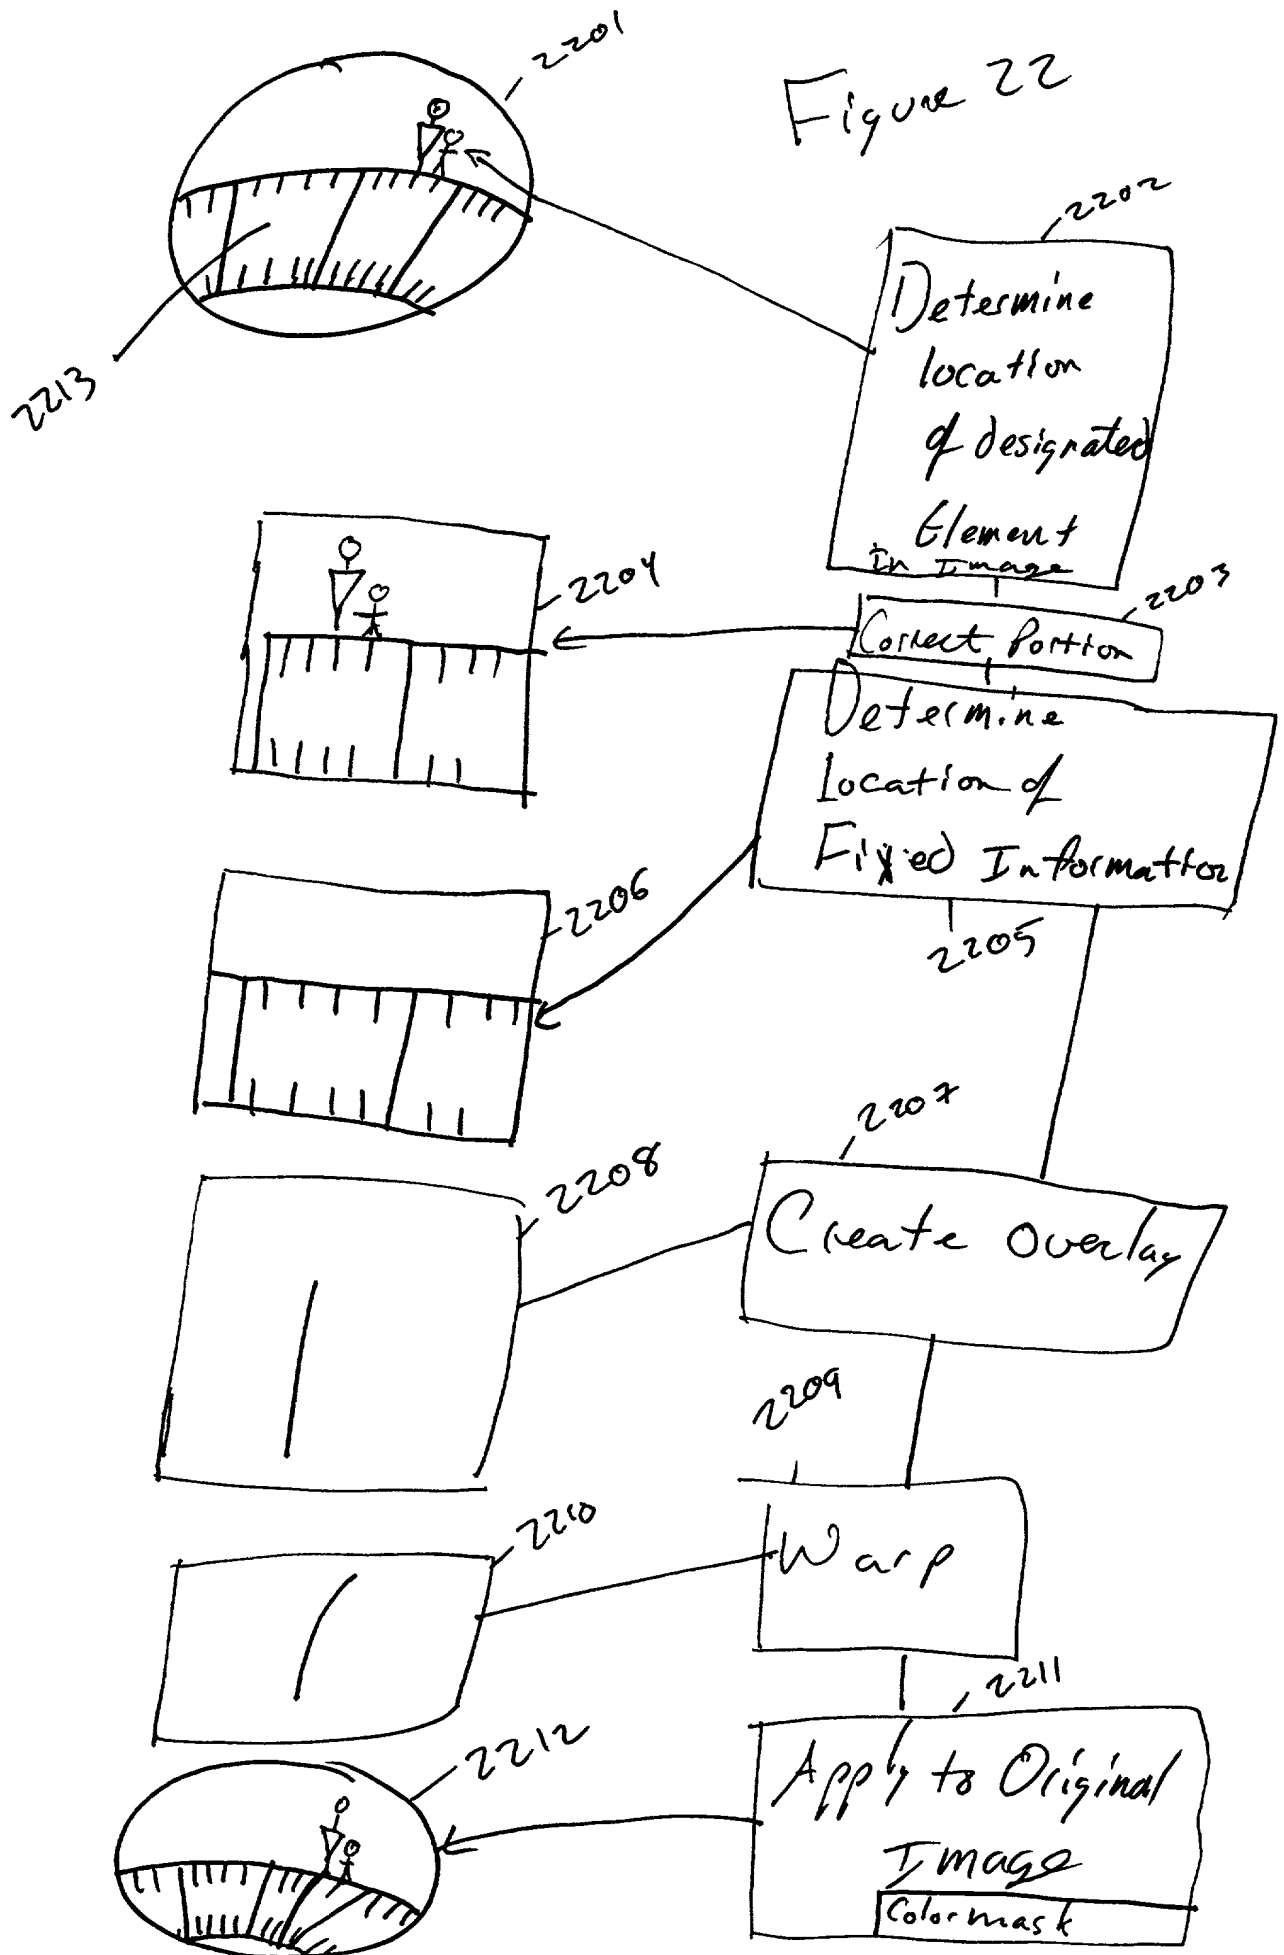 2201
Figure 22
2202
Determine
location
of designated
Element
In Image
2213
2204
2203
Correct Portion
Determine
Location of
Fixed Information
2206
2205
2207
2208
Create Overlay
2209
2210
Warp
2211
2212
Apply to Original
Image
Colormask